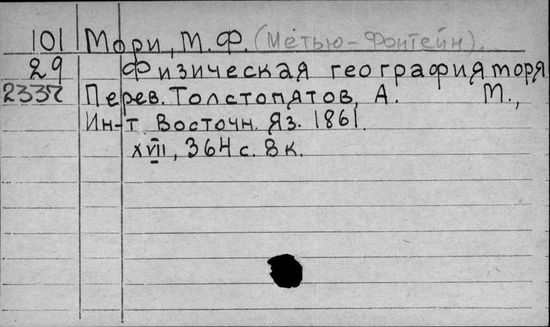 101 Мори, М.Ф. (Метью-Фонтейн).
29 Физическая география моря
2337 Перев. Толстопятов, А. М.,
Ин-т Восточн. Яз. 1861.
XVIII, 364 с. 8к.